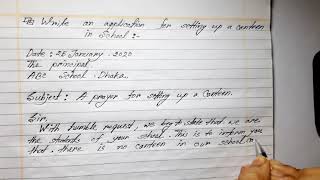 Write an application for setting up a canteen
in School :-
Date : 25 January. 2020
The principal
ABC School. Dhaka.
Subject : A prayer for setting up a Canteen.
Sir,
With humble request, we beg to state that we are
the students of your school. This is to inform you
that. there is no canteen in our school. in